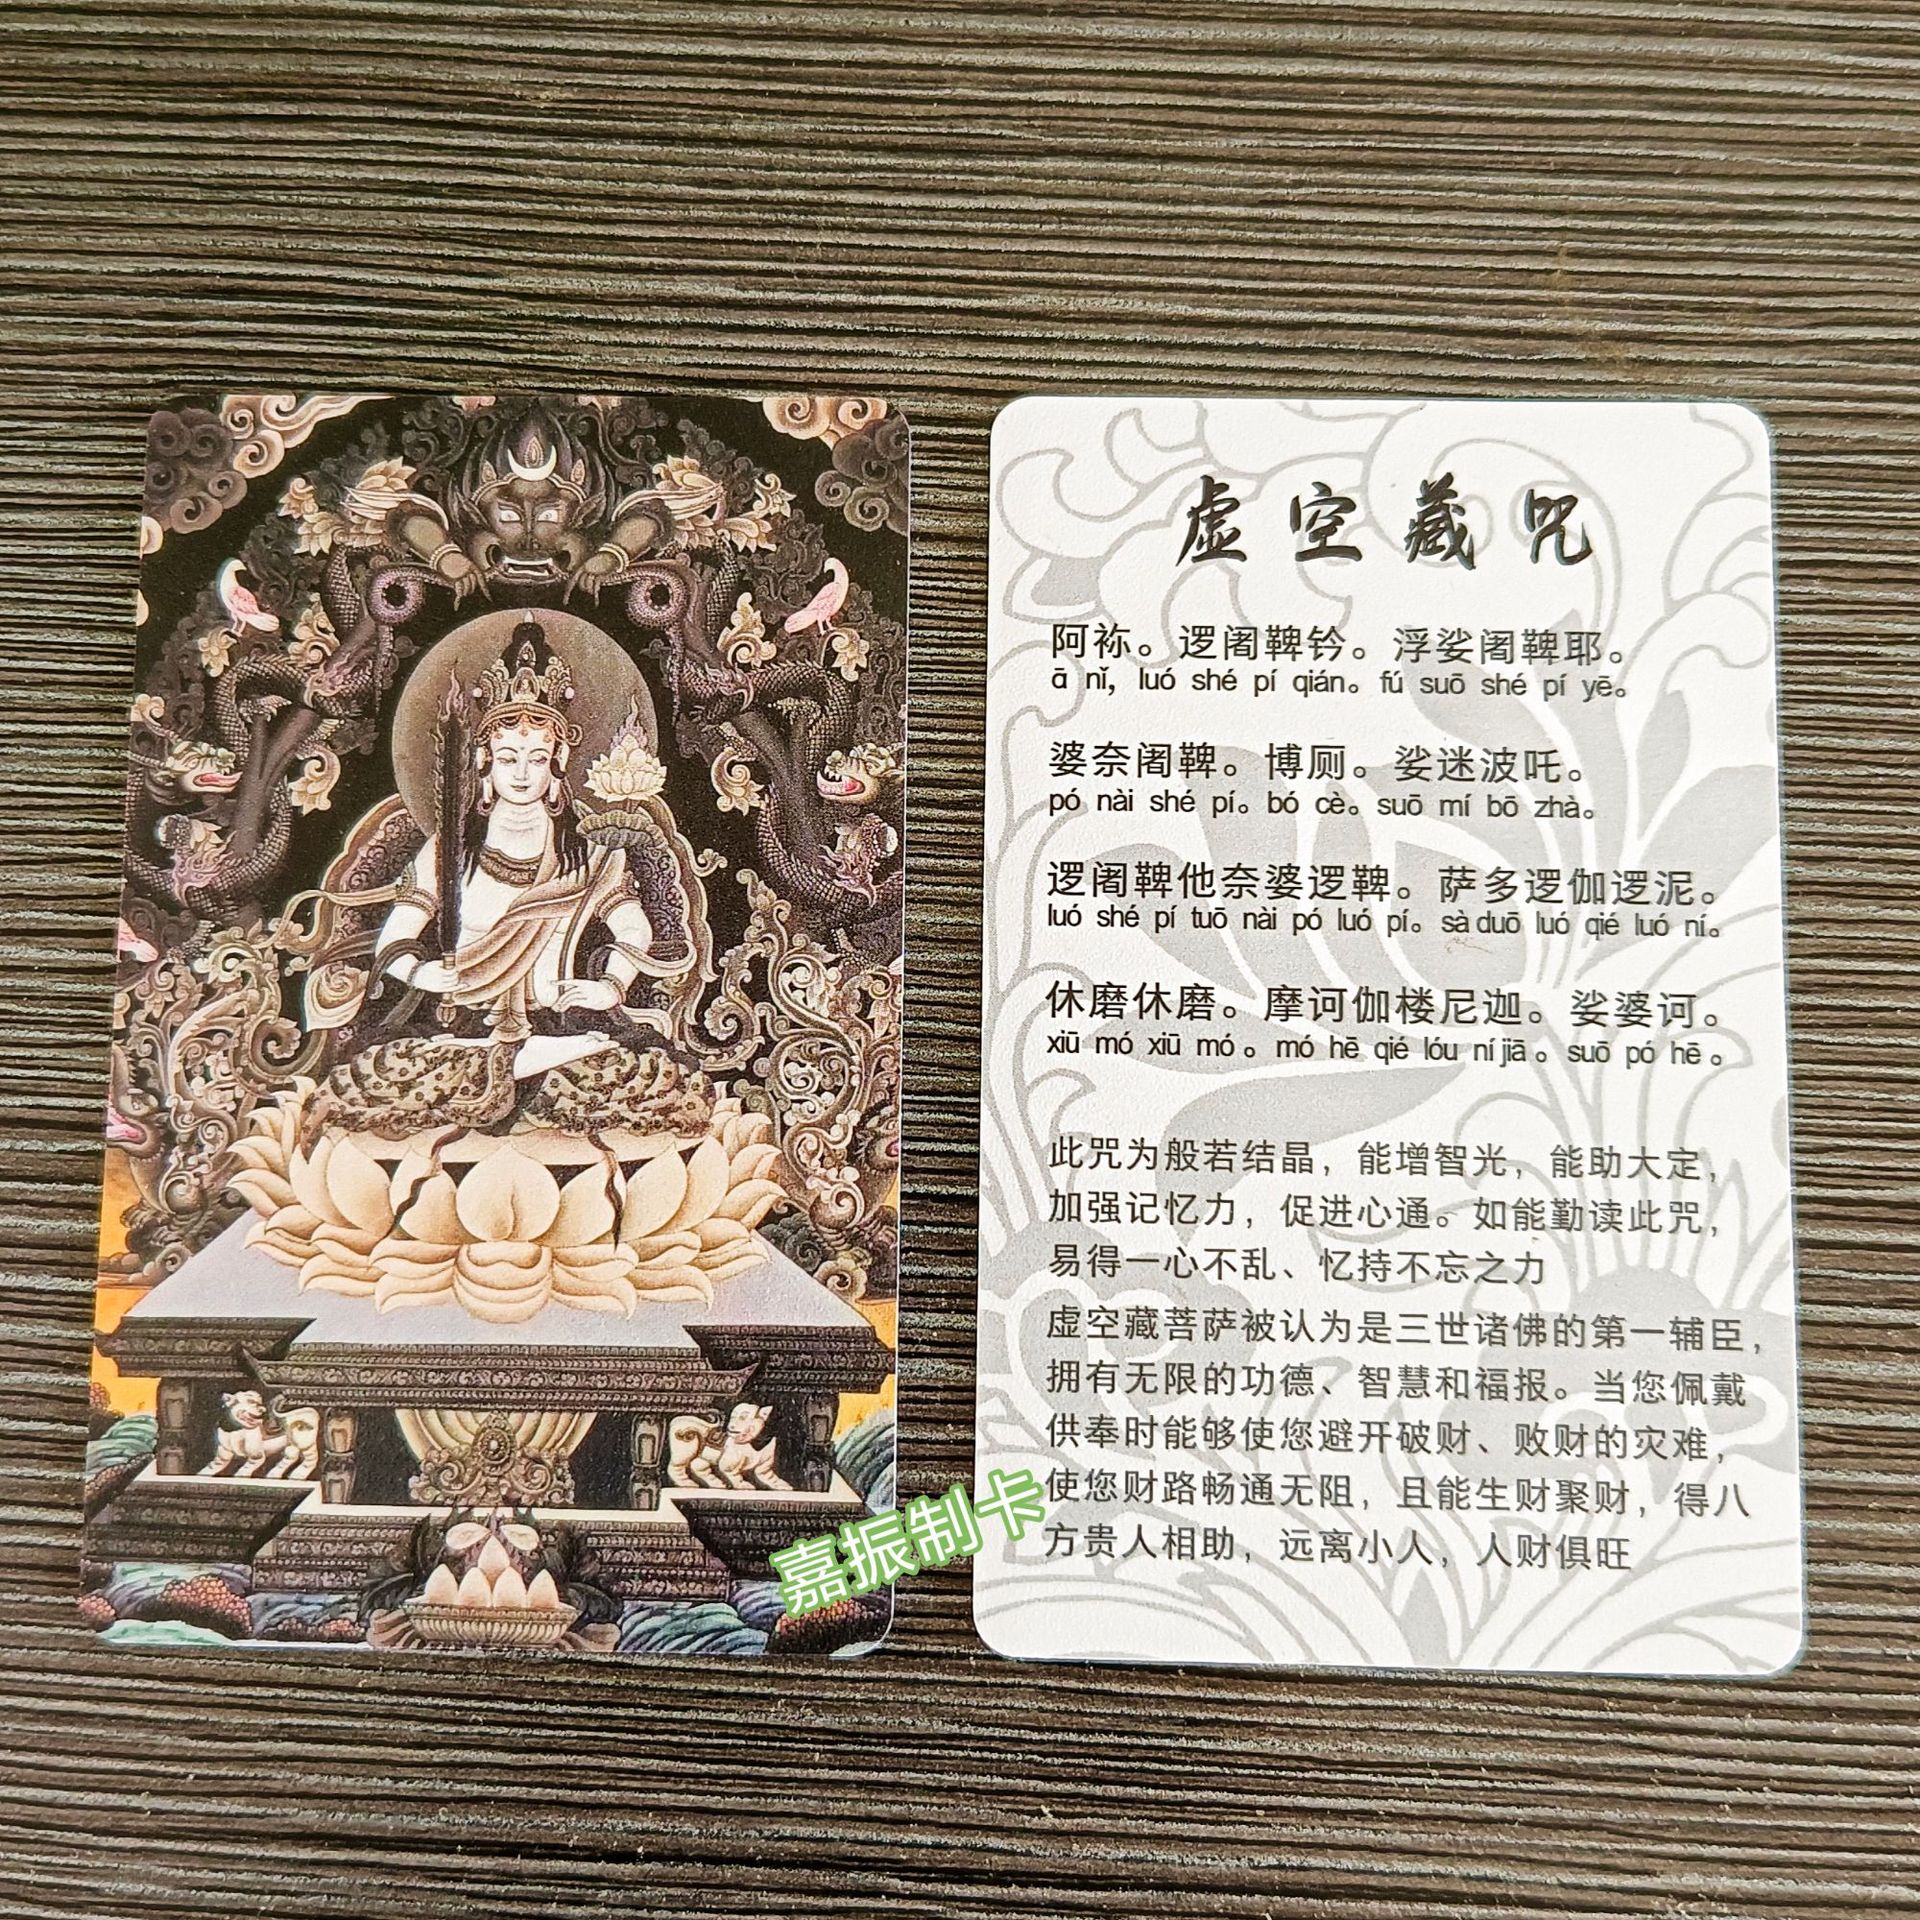 虚空藏咒
阿祢。逻阇鞞钤。浮娑阇鞞耶。
ā nǐ, luó shé pí qián。fú suō shé pí yē。
婆奈阇鞞。博厕。娑迷波吒。
pó nài shé pí。bó cè。suō mí bō zhà。
逻阇鞞他奈婆逻鞞。萨多逻伽逻泥。
luó shé pí tuō nài pó luó pí。sà duō luó qié luó ní。
休磨休磨。摩诃伽楼尼迦。娑婆诃。
xiū mó xiū mó。mó hē qié lóu ní jiā。suō pó hē。
此咒为般若结晶，能增智光，能助大定，
加强记忆力，促进心通。如能勤读此咒，
易得一心不乱、忆持不忘之力
虚空藏菩萨被认为是三世诸佛的第一辅臣，
拥有无限的功德、智慧和福报。当您佩戴
供奉时能够使您避开破财、败财的灾难，
使您财路畅通无阻，且能生财聚财，得八
方贵人相助，远离小人，人财俱旺
嘉振制卡